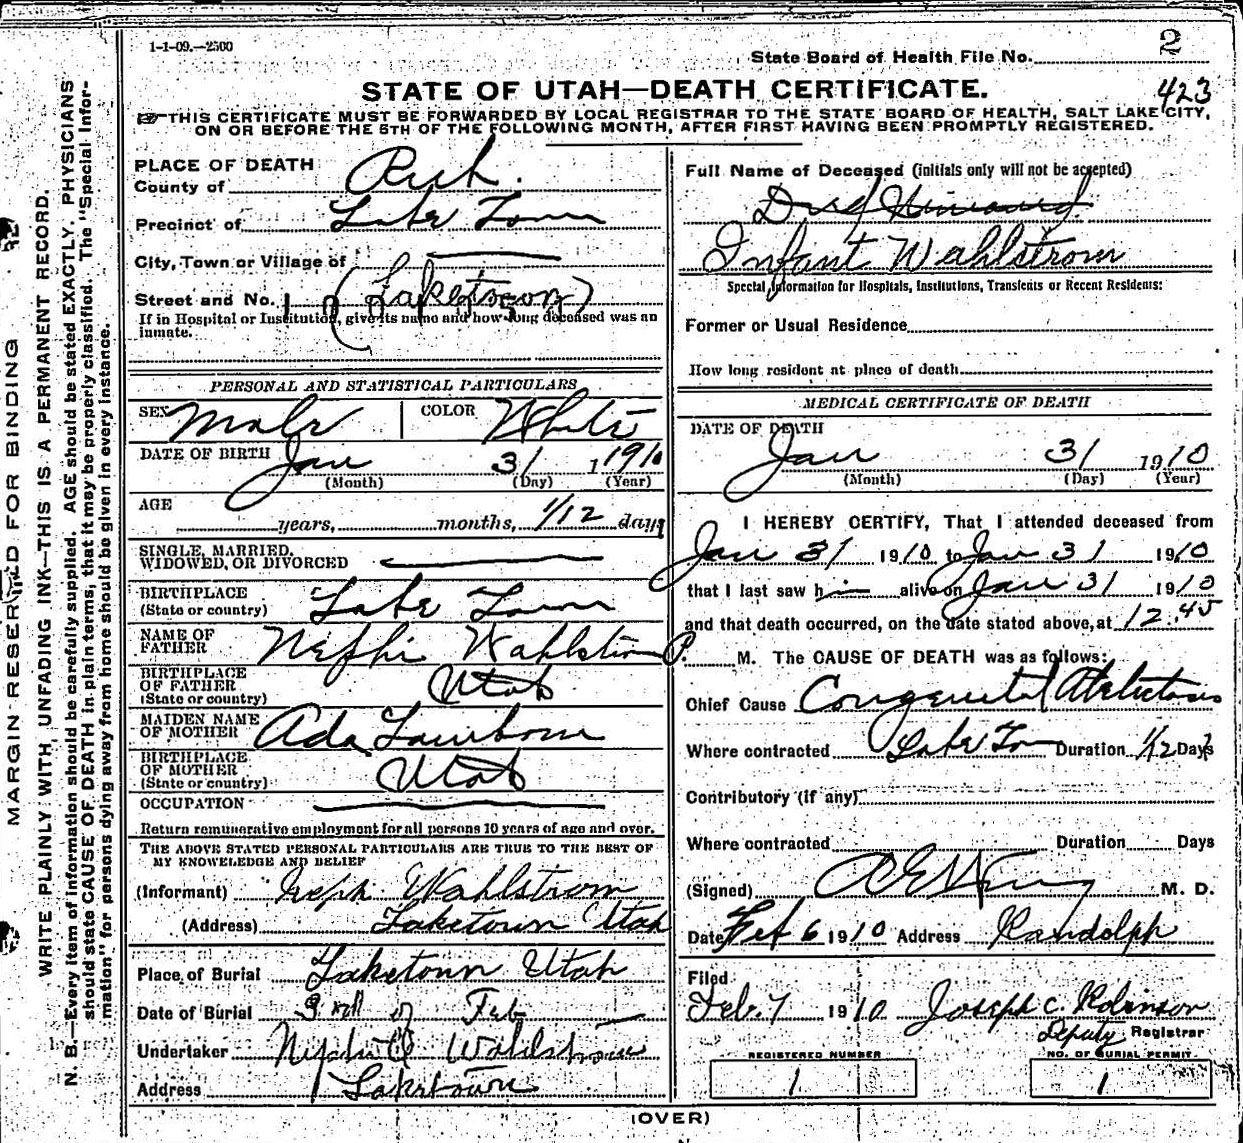 1-1-09.—2500
2
State Board of Health File No.
423
STATE OF UTAH—DEATH CERTIFICATE.
THIS CERTIFICATE MUST BE FORWARDED BY LOCAL REGISTRAR TO THE STATE BOARD OF HEALTH, SALT LAKE CITY,
ON OR BEFORE THE 5TH OF THE FOLLOWING MONTH, AFTER FIRST HAVING BEEN PROMPTLY REGISTERED.
MARGIN RESERVED FOR BINDING
WRITE PLAINLY WITH UNFADING INK—THIS IS A PERMANENT RECORD.
N. B.—Every item of information should be carefully supplied. AGE should be stated EXACTLY. PHYSICIANS
should state CAUSE OF DEATH in plain terms, that it may be properly classified. The "Special Infor-
mation" for persons dying away from home should be given in every instance.
PLACE OF DEATH
County of Rich.
Precinct of Lake Town
City, Town or Village of
Street and No. (Laketown)
If in Hospital or Institution, give its name and how long deceased was an
inmate.
PERSONAL AND STATISTICAL PARTICULARS
SEX Male COLOR White
DATE OF BIRTH Jan 31 1910
(Month) (Day) (Year)
AGE
years, months, 1/12 days
SINGLE, MARRIED,
WIDOWED, OR DIVORCED
BIRTHPLACE
(State or country) Lake Town
NAME OF
FATHER Nephi Wahlstrom
BIRTHPLACE
OF FATHER
(State or country) Utah
MAIDEN NAME
OF MOTHER Ada
BIRTHPLACE
OF MOTHER
(State or country) Utah
OCCUPATION
Return remunerative employment for all persons 10 years of age and over.
THE ABOVE STATED PERSONAL PARTICULARS ARE TRUE TO THE BEST OF
MY KNOWELEDGE AND BELIEF
(Informant) Wahlstrom
(Address) Laketown Utah
Place of Burial Laketown Utah
Date of Burial of Feb
Undertaker Wahlstrom
Address Laketown
Full Name of Deceased (initials only will not be accepted)
Infant Wahlstrom
Special Information for Hospitals, Institutions, Transients or Recent Residents:
Former or Usual Residence
How long resident at place of death
MEDICAL CERTIFICATE OF DEATH
DATE OF DEATH
Jan 31 1910
(Month) (Day) (Year)
I HEREBY CERTIFY, That I attended deceased from
Jan 31 1910 to Jan 31 1910
that I last saw him alive on Jan 31 1910
and that death occurred, on the date stated above, at 12.45
P. M. The CAUSE OF DEATH was as follows:
Chief Cause Congenital Atelectasis
Where contracted Lake Town Duration 1/12 Days
Contributory (if any)
Where contracted Duration Days
(Signed) M. D.
Date Feb 6 1910 Address Randolph
Filed
Feb. 7 1910 Joseph C. Robinson
Deputy Registrar
REGISTERED NUMBER NO. OF BURIAL PERMIT.
1 1
(OVER)